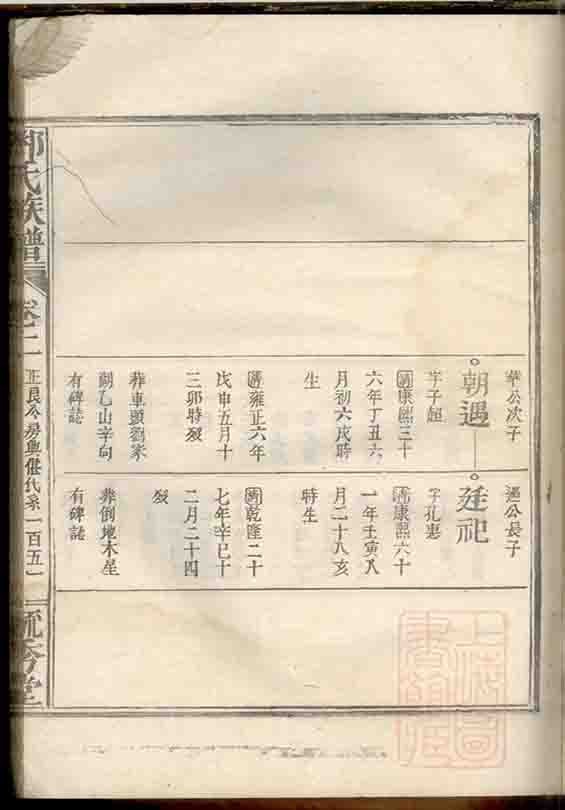 華公次子
朝遇
字子超
清康熙三十
六年丁丑六
月初六戌時
生
清雍正六年
戊申五月十
三卯時歿
葬車頭劉家
乙山辛向
有碑誌
遇公長子
廷祀
字孔惠
清康熙六十
一年壬寅八
月二十八亥
時生
清乾隆二十
七年辛巳十
二月二十四
歿
葬倒地木星
有碑誌
氏族譜
卷二
公房興代系
一百五一
堂
上海圖書館藏